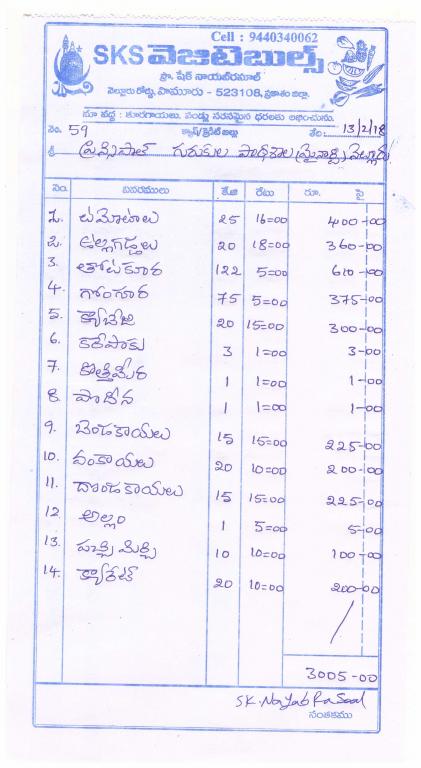 Cell : 9440340062
SKS వెజిటెబుల్స్
ప్రొ. షేక్ నాయబ్‌రసూల్
వెల్లూరు రోడ్డు, పామూరు - 523108, ప్రకాశం జిల్లా.
మా వద్ద : కూరగాయలు, పండ్లు సరసమైన ధరలకు లభించును.
నెం. 59 క్యాష్/క్రెడిట్ బిల్లు తేది. 13/2/18
శ్రీ ప్రిన్సిపాల్ గురుకుల పాఠశాల (మైనార్టి)
నెం. వివరములు కే.జి రేటు రూ. పై
1. టమోటాలు 25 16=00 400-00
2. ఉల్లగడ్డలు 20 18=00 360-00
3. తోటకూర 122 5=00 610-00
4. గోంగూర 75 5=00 375-00
5. క్యాబేజి 20 15=00 300-00
6. కరేపాకు 3 1=00 3-00
7. కొత్తిమీర 1 1=00 1-00
8. పొదీన 1 1=00 1-00
9. బెండకాయలు 15 15=00 225-00
10. వంకాయలు 20 10=00 200-00
11. దొండకాయలు 15 15=00 225-00
12. అల్లం 1 5=00 5-00
13. పచ్చి మిర్చి 10 10=00 100-00
14. క్యారేట్ 20 10=00 200-00
3005-00
SK. Nayab Rasool
సంతకము